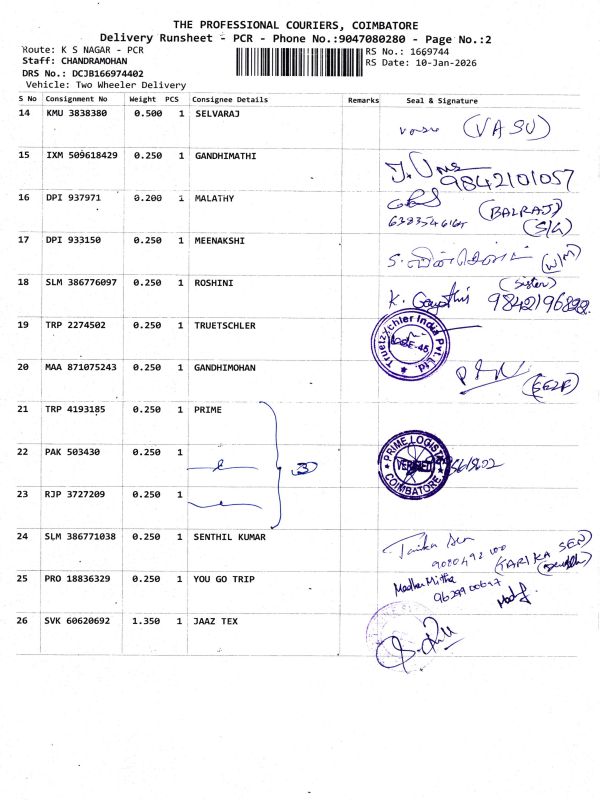 THE PROFESSIONAL COURIERS, COIMBATORE
Delivery Runsheet - PCR - Phone No.:9047080280 - Page No.:2
Route: K S NAGAR - PCR
RS No.: 1669744
Staff: CHANDRAMOHAN
RS Date: 10-Jan-2026
DRS No.: DCJB166974402
Vehicle: Two Wheeler Delivery
S No Consignment No Weight PCS Consignee Details Remarks Seal & Signature
14 KMU 3838380 0.500 1 SELVARAJ (VASU)
15 IXM 509618429 0.250 1 GANDHIMATHI 9842101057
16 DPI 937971 0.200 1 MALATHY (BALRAJ)
(S/G)
17 DPI 933150 0.250 1 MEENAKSHI (W/M)
18 SLM 386776097 0.250 1 ROSHINI (Sister)
K. Gayathri
19 TRP 2274502 0.250 1 TRUETSCHLER Truetzschler India Pvt. Ltd.
20 MAA 871075243 0.250 1 GANDHIMOHAN
21 TRP 4193185 0.250 1 PRIME
22 PAK 503430 0.250 1 3 PRIME LOGISTI VERIFIED COIMBATORE
23 RJP 3727209 0.250 1
24 SLM 386771038 0.250 1 SENTHIL KUMAR Tarika Sen
(TARIKA SEN)
25 PRO 18836329 0.250 1 YOU GO TRIP
26 SVK 60620692 1.350 1 JAAZ TEX